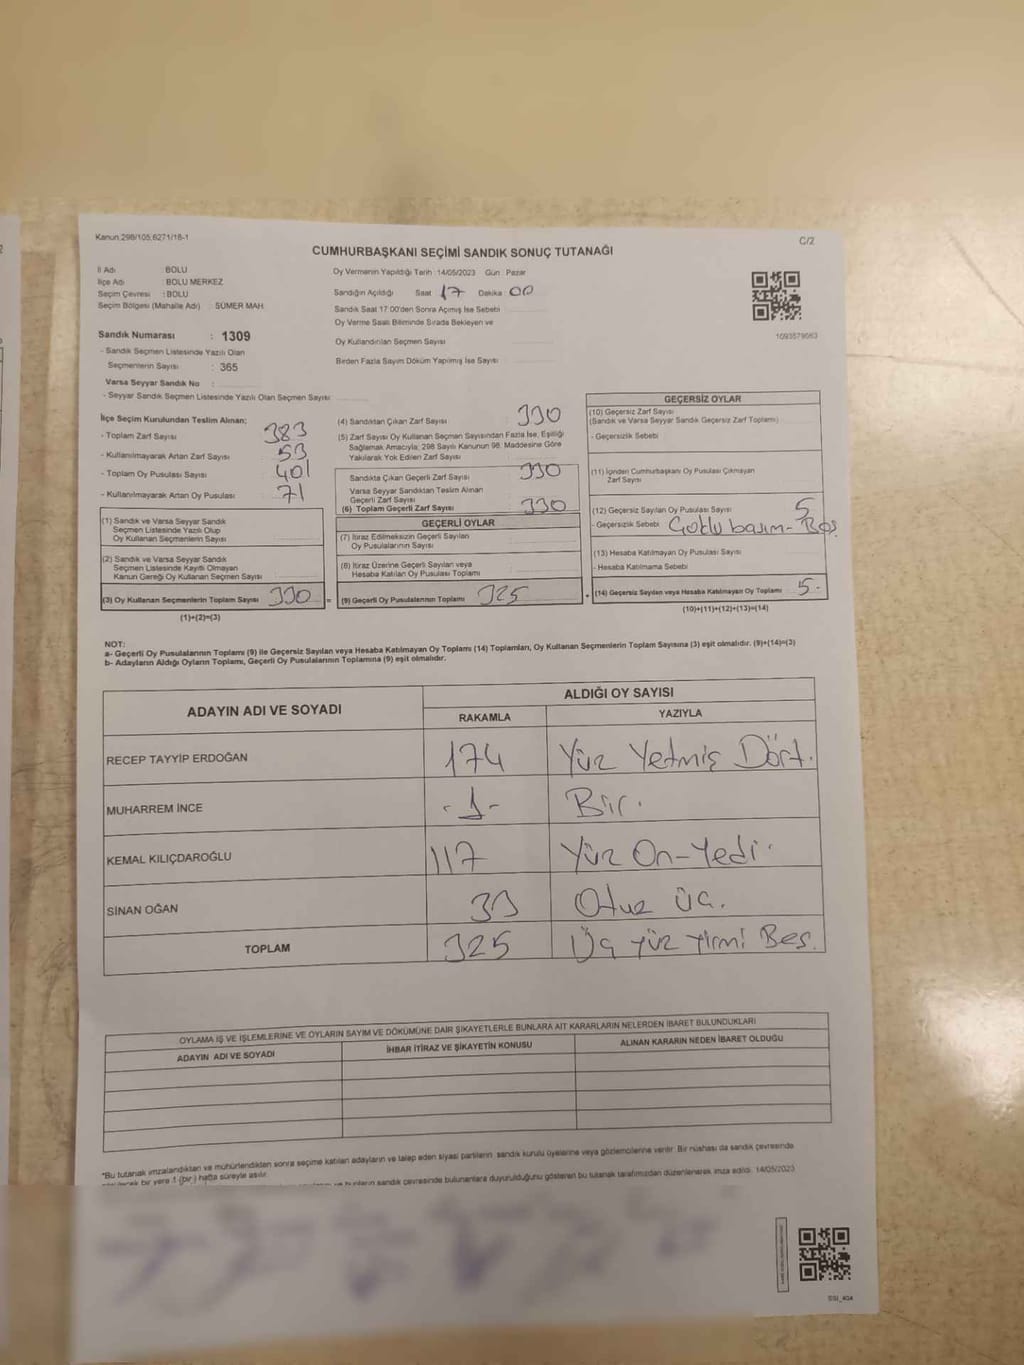 Kanun:298/105;6271/18-1
C/2
CUMHURBAŞKANI SEÇİMİ SANDIK SONUÇ TUTANAĞI
İl Adı : BOLU
İlçe Adı : BOLU MERKEZ
Seçim Çevresi : BOLU
Seçim Bölgesi (Mahalle Adı) : SÜMER MAH.
Sandık Numarası : 1309
- Sandık Seçmen Listesinde Yazılı Olan
Seçmenlerin Sayısı : 365
Varsa Seyyar Sandık No :
- Seyyar Sandık Seçmen Listesinde Yazılı Olan Seçmen Sayısı :
Oy Vermenin Yapıldığı Tarih :14/05/2023 Gün : Pazar
Sandığın Açıldığı Saat 17 Dakika : 00
Sandık Saat 17:00'den Sonra Açımış İse Sebebi
Oy Verme Saati Bitiminde Sırada Bekleyen ve
Oy Kullandırılan Seçmen Sayısı
Birden Fazla Sayım Döküm Yapılmış İse Sayısı
1093579063
İlçe Seçim Kurulundan Teslim Alınan;
- Toplam Zarf Sayısı 383
- Kullanılmayarak Artan Zarf Sayısı 53
- Toplam Oy Pusulası Sayısı 401
- Kullanılmayarak Artan Oy Pusulası 71
(1) Sandık ve Varsa Seyyar Sandık
Seçmen Listesinde Yazılı Olup
Oy Kullanan Seçmenlerin Sayısı
(2) Sandık ve Varsa Seyyar Sandık
Seçmen Listesinde Kayıtlı Olmayan
Kanun Gereği Oy Kullanan Seçmen Sayısı
(3) Oy Kullanan Seçmenlerin Toplam Sayısı 330 =
(1)+(2)=(3)
(4) Sandıktan Çıkan Zarf Sayısı 330
(5) Zarf Sayısı Oy Kullanan Seçmen Sayısından Fazla İse, Eşitliği
Sağlamak Amacıyla; 298 Sayılı Kanunun 98. Maddesine Göre
Yakılarak Yok Edilen Zarf Sayısı
Sandıkta Çıkan Geçerli Zarf Sayısı 330
Varsa Seyyar Sandıktan Teslim Alınan
Geçerli Zarf Sayısı
(6) Toplam Geçerli Zarf Sayısı 330
GEÇERLİ OYLAR
(7) İtiraz Edilmeksizin Geçerli Sayılan
Oy Pusulalarının Sayısı
(8) İtiraz Üzerine Geçerli Sayılan veya
Hesaba Katılan Oy Pusulası Toplamı
(9) Geçerli Oy Pusulalarının Toplamı 325 +
GEÇERSİZ OYLAR
(10) Geçersiz Zarf Sayısı
(Sandık ve Varsa Seyyar Sandık Geçersiz Zarf Toplamı)
- Geçersizlik Sebebi
(11) İçinden Cumhurbaşkanı Oy Pusulası Çıkmayan
Zarf Sayısı
(12) Geçersiz Sayılan Oy Pusulası Sayısı 5
- Geçersizlik Sebebi Çoklu basım-Boş
(13) Hesaba Katılmayan Oy Pusulası Sayısı
- Hesaba Katılmama Sebebi
(14) Geçersiz Sayılan veya Hesaba Katılmayan Oy Toplamı 5.
(10)+(11)+(12)+(13)=(14)
NOT:
a- Geçerli Oy Pusulasının Toplamı (9) ile Geçersiz Sayılan veya Hesaba Katılmayan Oy Toplamı (14) Toplamları, Oy Kullanan Seçmenlerin Toplam Sayısına (3) eşit olmalıdır. (9)+(14)=(3)
b- Adayların Aldığı Oyların Toplamı, Geçerli Oy Pusulalarının Toplamına (9) eşit olmalıdır.
ADAYIN ADI VE SOYADI ALDIĞI OY SAYISI
RAKAMLA YAZIYLA
RECEP TAYYİP ERDOĞAN 174 Yüz Yetmiş Dört.
MUHARREM İNCE -1- Bir.
KEMAL KILIÇDAROĞLU 117 Yüz On-Yedi.
SİNAN OĞAN 33 Otuz üç.
TOPLAM 325 Üç yüz yirmi Beş.
OYLAMA İŞ VE İŞLEMLERİNE VE OYLARIN SAYIM VE DÖKÜMÜNE DAİR ŞİKAYETLERLE BUNLARA AİT KARARLARIN NELERDEN İBARET BULUNDUKLARI
ADAYIN ADI VE SOYADI İHBAR İTİRAZ VE ŞİKAYETİN KONUSU ALINAN KARARIN NEDEN İBARET OLDUĞU
*Bu tutanak imzalandıktan ve mühürlendikten sonra seçime katılan adayların ve talep eden siyasi partilerin sandık kurulu üyelerine veya gözlemcilerine verilir. Bir nüshası da sandık çevresinde
bir yere 1 (bir) hafta süreyle asılır.
ve bunların sandık çevresinde bulunanlara duyurulduğunu gösteren bu tutanak tarafımızdan düzenlenerek imza edildi. 14/05/2023